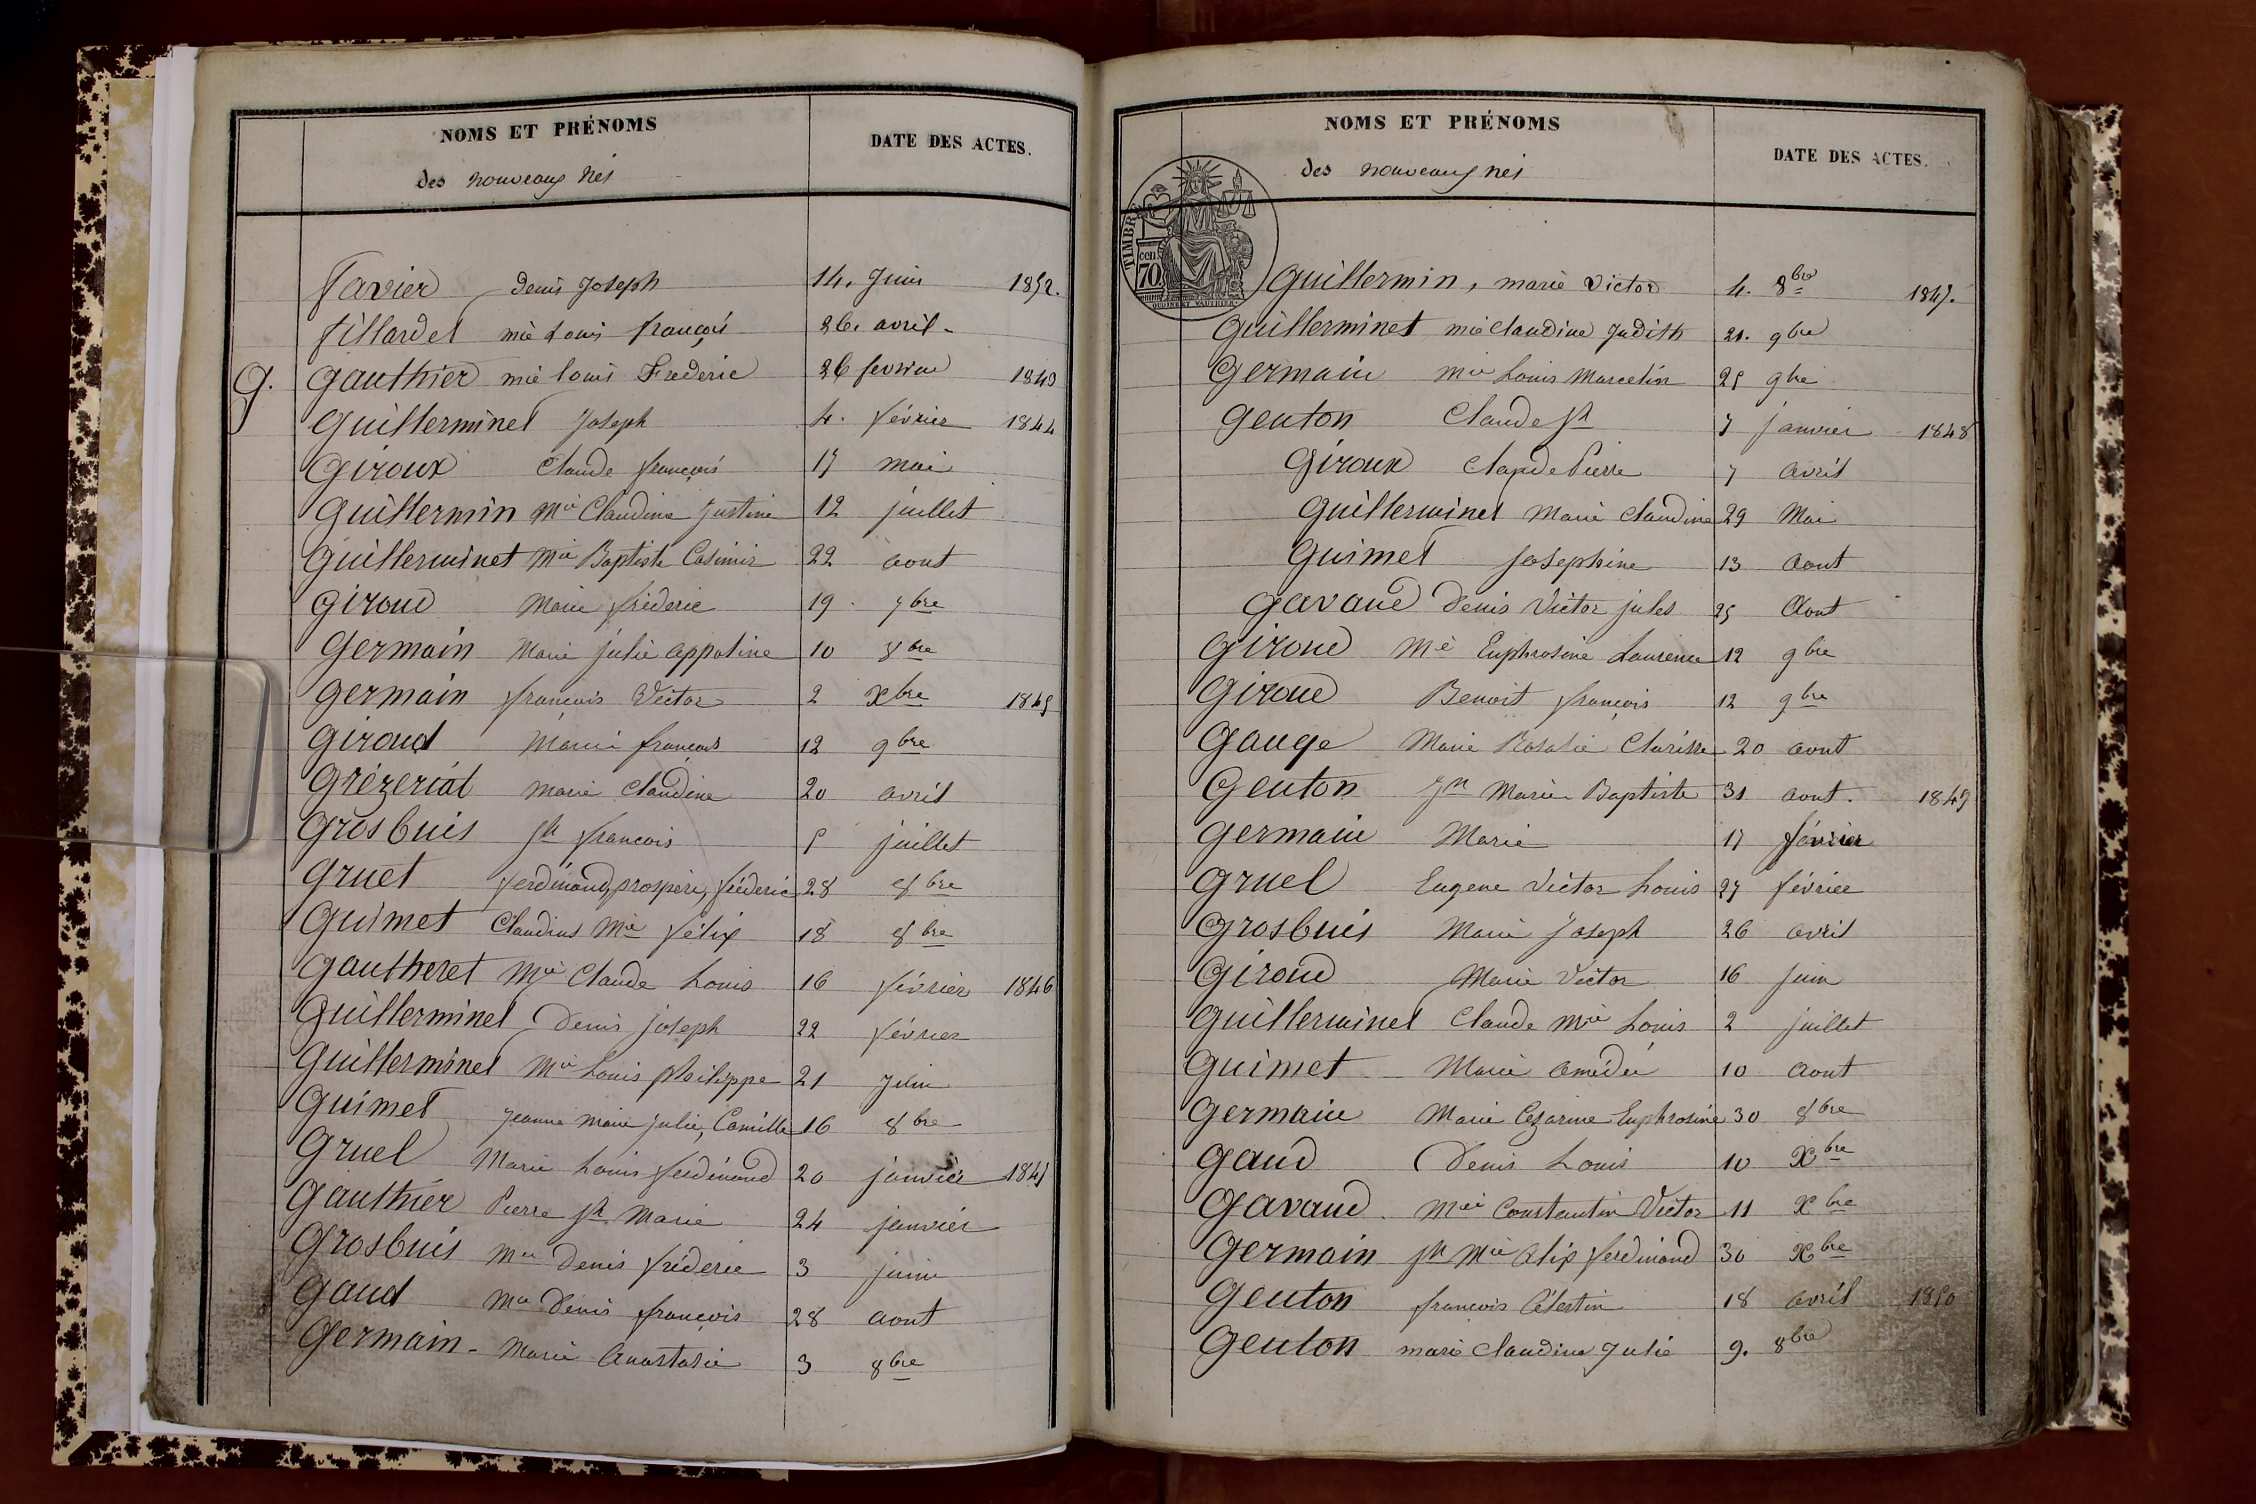 NOMS ET PRÉNOMS
des nouveaux nés
DATE DES ACTES.
Favier Denis Joseph 14. Juin 1852.
fillardet mie Louis françois 26. avril -
G. Gauthier mie louis Frederic 26 fevrier 1843
Guillerminet Joseph 4. février 1844
Giroux Claude françois 17 mai
Guillermin Mie Claudine Justine 12 juillet
Guillerminet Mie Baptiste Casimir 22 aout
Giroud Marie fréderic 19. 7bre
Germain Marie julie appoline 10 8bre
Germain françois Victor 2 Xbre 1845
Giroud Marie françois 12 9bre
Grézeriat Marie Claudine 20 avril
Grosbuis Jh françois 5 juillet
Gruet ferdinand, prospère, fréderic 28 8bre
Guimet Claudius Mie félix 18 8bre
Gautheret Mie Claude Louis 16 février 1846
Guillerminet Denis joseph 22 février
Guillerminet Mie Louis philippe 21 juin
Guimet Jeanne Marie julie, Camille 16 8bre
Gruel Marie Louis ferdinand 20 janvier 1847
Gauthier Pierre Jh Marie 24 janvier
Grosbuis Mie Denis fréderic 3 juin
Gaud Mie Denis françois 28 aout
Germain - Marie Anastasie 3 8bre
NOMS ET PRÉNOMS
des nouveaux nés
DATE DES ACTES.
TIMBRE
cen
70
Guillermin, marie Victor 4. 8bre 1847.
Guillerminet mie Claudine Judith 21. 9bre
Germain Mie Louis Marcelin 25 9bre
Genton Claude Jh 7 janvier 1848
Giroux Claude Pierre 7 avril
Guillerminet Marie Claudine 29 Mai
Guimet Joséphine 13 Aout
Gavaud Denis Victor jules 25 Aout
Giroud Mie Euphrosine Laurence 12 9bre
Giroud Benoit françois 12 9bre
Gauge Marie Rosalie Clarisse 20 aout
Genton Jn Marie Baptiste 31 aout. 1849
Germain Marie 17 février
Gruel Eugene Victor Louis 27 février
Grosbuis Marie Joseph 26 avril
Giroud Marie Victor 16 juin
Guillerminet Claude Mie Louis 2 juillet
Guimet Marie amédée 10 Aout
Germain Marie Cezarine Euphrosine 30 8bre
Gaud Denis Louis 10 Xbre
Gavaud Mie Constantin Victor 11 Xbre
Germain Jh Mie Alix ferdinand 30 Xbre
Genton françois Célestin 18 avril 1850
Genton marie Claudine Julie 9. 8bre